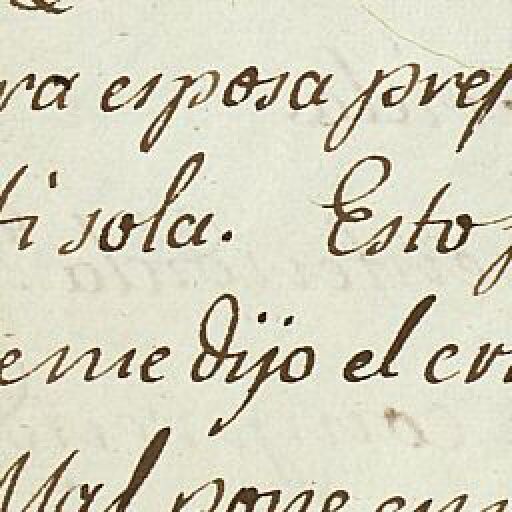 ra esposa pref
ti sola. Esto
eme dijo el cri
Mal pone em